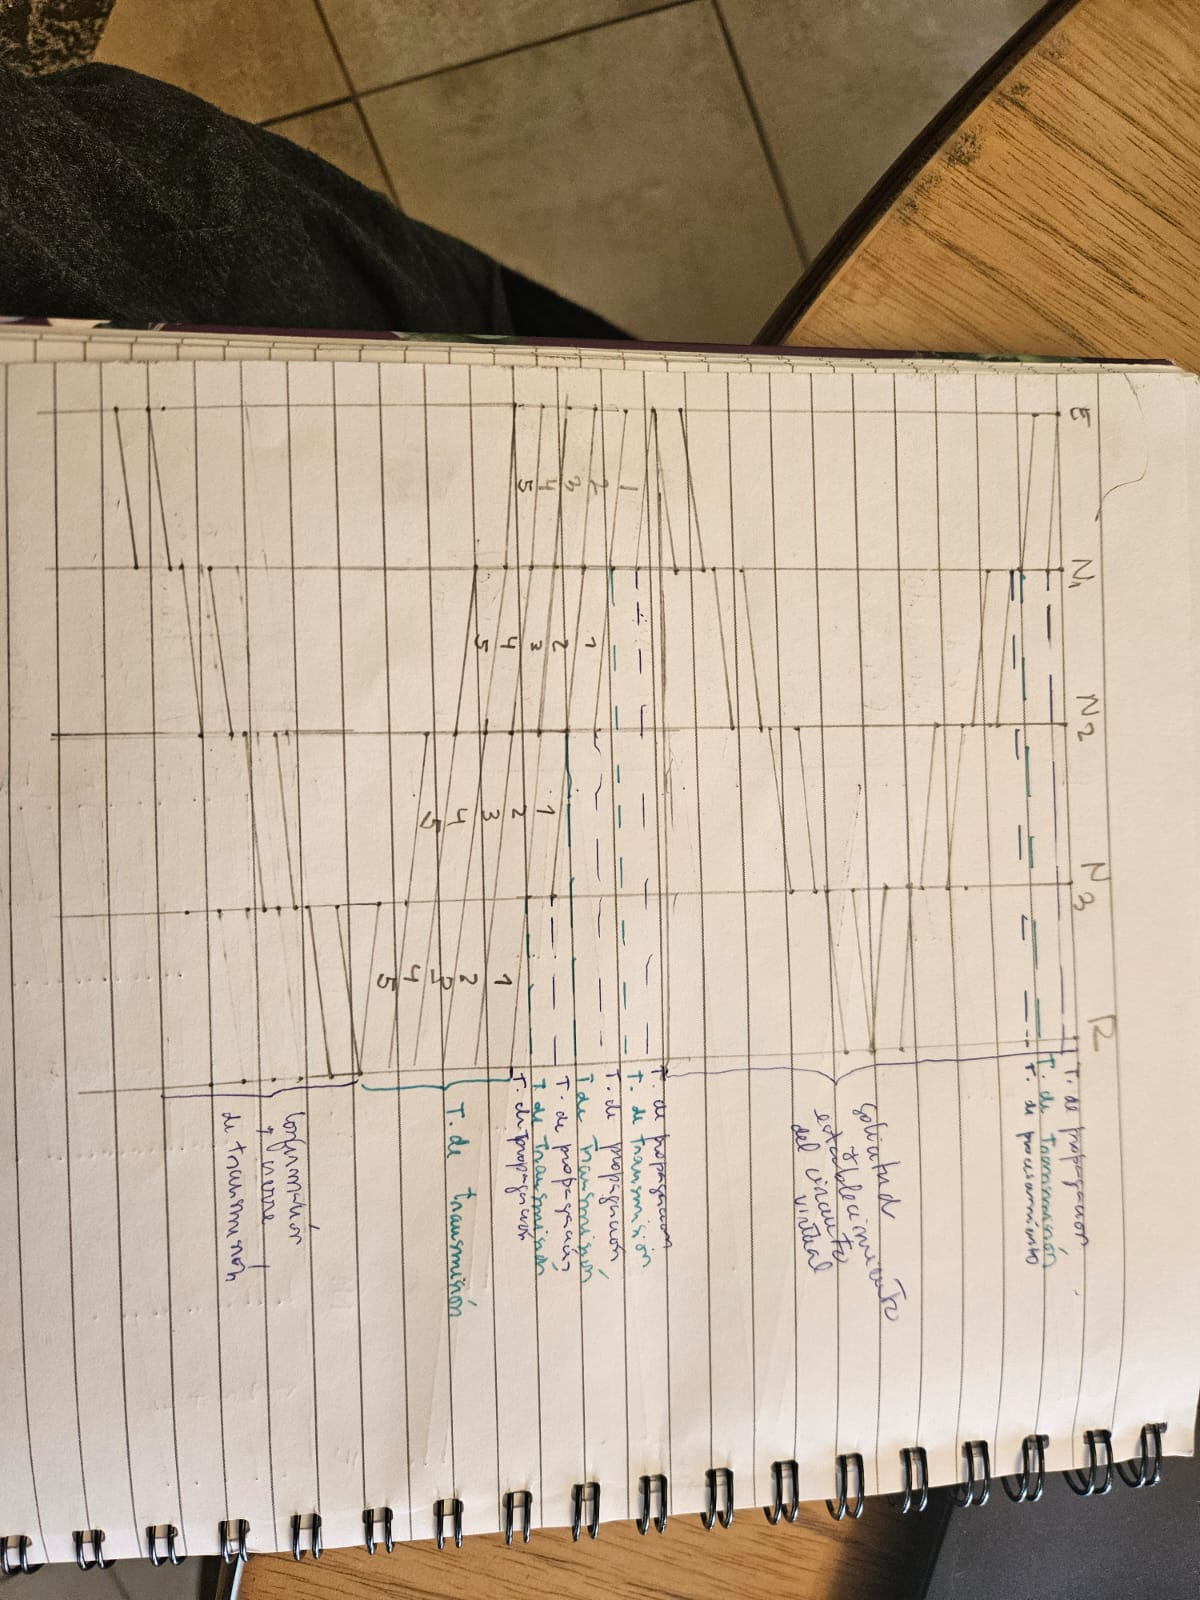 E N1 N2 N3 R
T. de propagación
T. de transmisión
T. de procesamiento
Solicitud
y
establecimiento
del circuito
virtual
T. de propagación
1 T. de transmisión
2 1 T. de propagación
3 2 T. de transmisión
4 3 1 T. de propagación
5 4 2 1 T. de transmisión
5 3 2 T. de propagación
4 3
5 4 T. de transmisión
5
Confirmación
y cierre
de transmisión